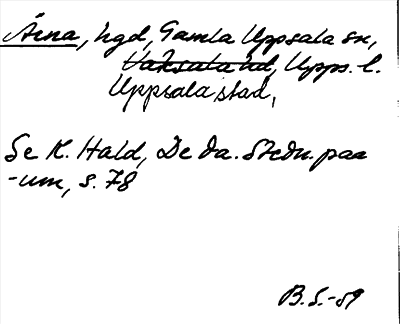 Ärna, hgd, Gamla Uppsala sn,
Vaksala hd, Upps. l.
Uppsala stad,
Se K. Hald, De da. Stedn. paa
-um, s. 78
B.S.-59